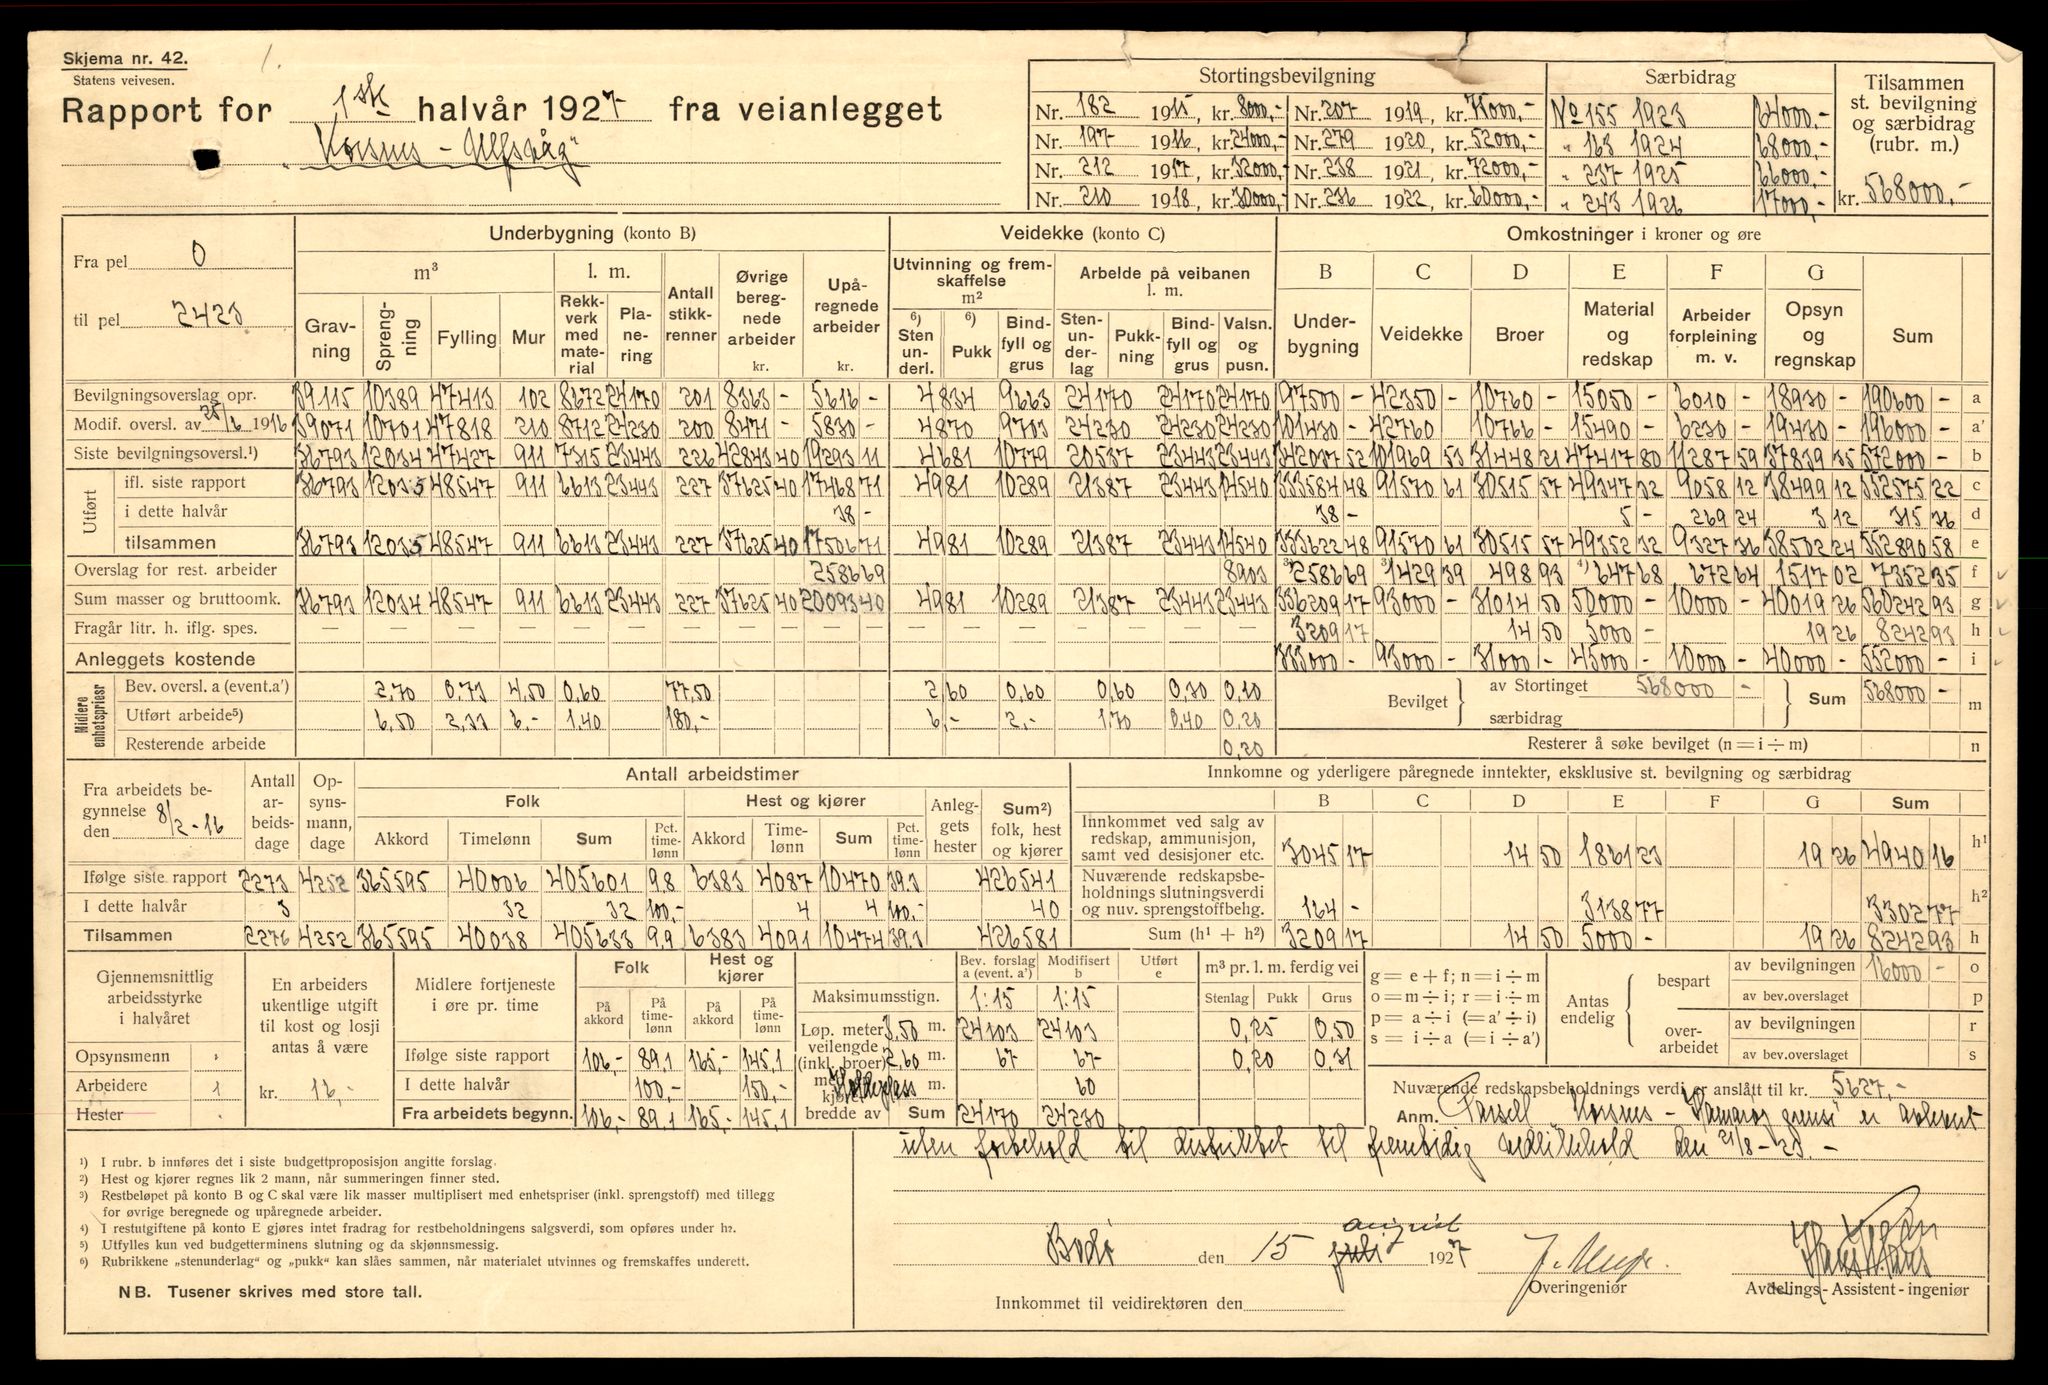 Skjema nr. 42.
Statens veivesen.
Rapport for 1ste halvår 1927 fra veianlegget
"Korsnes - Ulfsvåg"
Stortingsbevilgning
Nr. 182 1915, kr. 8000,- Nr. 207 1919, kr. 75000,-
Nr. 197 1916, kr. 24000,- Nr. 279 1920, kr. 52000,-
Nr. 212 1917, kr. 32000,- Nr. 238 1921, kr. 72000,-
Nr. 210 1918, kr. 30000,- Nr. 236 1922, kr. 60000,-
Særbidrag
No 155 1923 64000,-
" 163 1924 68000,-
" 237 1925 66000,-
" 243 1926 17000,-
Tilsammen
st. bevilgning
og særbidrag
(rubr. m.)
kr. 568000,-
Fra pel 0
til pel 2423
Underbygning (konto B) Veidekke (konto C) Omkostninger i kroner og øre
m³ l. m. Antall stikkrenner Øvrige beregnede arbeider kr. Upåregnede arbeider kr.
Gravning Sprengning Fylling Mur Rekkverk med material Planering
Utvinning og fremskaffelse m² Arbeide på veibanen l. m.
6) Sten underl. 6) Pukk Bindfyll og grus Stenunderlag Pukkning Bindfyll og grus Valsn. og pusn.
B C D E F G
Underbygning Veidekke Broer Material og redskap Arbeider forpleining m. v. Opsyn og regnskap Sum
Bevilgningsoverslag opr. 39115 10389 47413 102 8672 24170 201 8363 - 5616 - 4834 9663 24170 24170 24170 97500 - 42350 - 10760 - 15050 - 6010 - 18930 - 190600 - a
Modif. oversl. av 25/6 1916 39071 10701 47818 210 8712 24230 200 8471 - 5830 - 4870 9703 24230 24230 24230 101430 - 42760 10766 - 15490 - 6230 - 19430 - 196000 - a'
Siste bevilgningsoversl.¹) 36793 12034 47427 911 7315 23443 226 42843 40 19293 11 4681 10779 20537 23443 23443 342037 52 101969 53 31448 21 47417 80 11287 59 37839 35 572000 - b
Utført
ifl. siste rapport 36793 12035 48547 911 6613 23443 227 37625 40 17468 71 4981 10289 21387 23443 14540 333584 48 91570 61 30515 57 49347 32 9058 12 38499 12 552575 22 c
i dette halvår 38 - 38 - 5 - 269 24 3 12 315 36 d
tilsammen 36793 12035 48547 911 6613 23443 227 37625 40 17506 71 4981 10289 21387 23443 14540 333622 48 91570 61 30515 57 49352 32 9327 36 38502 24 552890 58 e
Overslag for rest. arbeider 2586 69 8903 ³) 2586 69 ³) 1429 39 498 93 ⁴) 647 68 672 64 1517 02 7352 35 f
Sum masser og bruttoomk. 36793 12034 48547 911 6613 23443 227 37625 40 20093 40 4981 10289 21387 23443 23443 336209 17 93000 - 31014 50 50000 - 10000 - 40019 26 560242 93 g
Fragår litr. h. iflg. spes. — — — — — — — — — — — — — — 3209 17 14 50 5000 - 19 26 8242 93 h
Anleggets kostende 333000 - 93000 - 31000 - 45000 - 10000 - 40000 - 552000 - i
Midlere enhetspriser
Bev. oversl. a (event. a') 2,70 0,73 4,50 0,60 77,50 2,60 0,60 0,60 0,30 0,10
Utført arbeide⁵) 6,50 2,33 6,- 1,40 180,- 6,- 2,- 1,70 0,40 0,20
Resterende arbeide 0,20
Bevilget av Stortinget 568000 - særbidrag Sum 568000 - m
Resterer å søke bevilget (n = i ÷ m) n
Fra arbeidets begynnelse den 8/2 - 16
Antall arbeidsdage Opsynsmann, dage
Antall arbeidstimer
Folk Hest og kjører Anleggets hester Sum²) folk, hest og kjører
Akkord Timelønn Sum Pct. timelønn Akkord Timelønn Sum Pct. timelønn
Ifølge siste rapport 2273 4252 365595 40006 405601 9.8 6383 4087 10470 39.3 426541
I dette halvår 3 32 32 100,- 4 4 100,- 40
Tilsammen 2276 4252 365595 40038 405633 9.9 6383 4091 10474 39.3 426581
Innkomne og yderligere påregnede inntekter, eksklusive st. bevilgning og særbidrag
B C D E F G Sum
Innkommet ved salg av redskap, ammunisjon, samt ved desisjoner etc. 3045 17 14 50 1861 23 19 26 4940 16 h¹
Nuværende redskapsbeholdnings slutningsverdi og nuv. sprengstoffbehg. 164 - 3138 77 3302 77 h²
Sum (h¹ + h²) 3209 17 14 50 5000 - 19 26 8242 93 h
Gjennemsnittlig arbeidsstyrke i halvåret
Opsynsmenn "
Arbeidere 1
Hester
En arbeiders ukentlige utgift til kost og losji antas å være
kr. 16,-
Midlere fortjeneste i øre pr. time
Folk Hest og kjører
På akkord På timelønn På akkord På timelønn
Ifølge siste rapport 106,- 89,1 165,- 145,1
I dette halvår 100,- 150,-
Fra arbeidets begynn. 106,- 89,1 165,- 145,1
Bev. forslag a (event. a') Modifisert b Utført e
Maksimumsstign. 1:15 1:15
Løp. meter veilengde (inkl. broer) med kjørebredde av
3,50 m. 24103 24103
2,60 m. 67 67
m. 60
Sum 24170 24230
m³ pr. l. m. ferdig vei
Stenlag Pukk Grus
0,25 0,50
0,20 0,31
g = e + f; n = i ÷ m
o = m ÷ i; r = i ÷ m
p = a ÷ i (= a' ÷ i)
s = i ÷ a (= i ÷ a')
Antas endelig
bespart av bevilgningen 16000 - o
av bev.overslaget p
overarbeidet av bevilgningen r
av bev.overslaget s
Nuværende redskapsbeholdnings verdi er anslått til kr. 5627,-
Anm. Parsell Korsnes - Hamarøy grense er avlevert
uten forbehold til distriktet til fremtidig vedlikehold den 21/8 - 23. -
¹) I rubr. b innføres det i siste budgettproposisjon angitte forslag.
²) Hest og kjører regnes lik 2 mann, når summeringen finner sted.
³) Restbeløpet på konto B og C skal være lik masser multiplisert med enhetspriser (inkl. sprengstoff) med tillegg
for øvrige beregnede og upåregnede arbeider.
⁴) I restutgiftene på konto E gjøres intet fradrag for restbeholdningens salgsverdi, som opføres under h₂.
⁵) Utfylles kun ved budgetterminens slutning og da skjønnsmessig.
⁶) Rubrikkene „stenunderlag" og „pukk" kan slåes sammen, når materialet utvinnes og fremskaffes underett.
NB. Tusener skrives med store tall.
Bodø den 15 juli august 1927
Overingeniør
Avdelings-Assistent-ingeniør
Innkommet til veidirektøren den